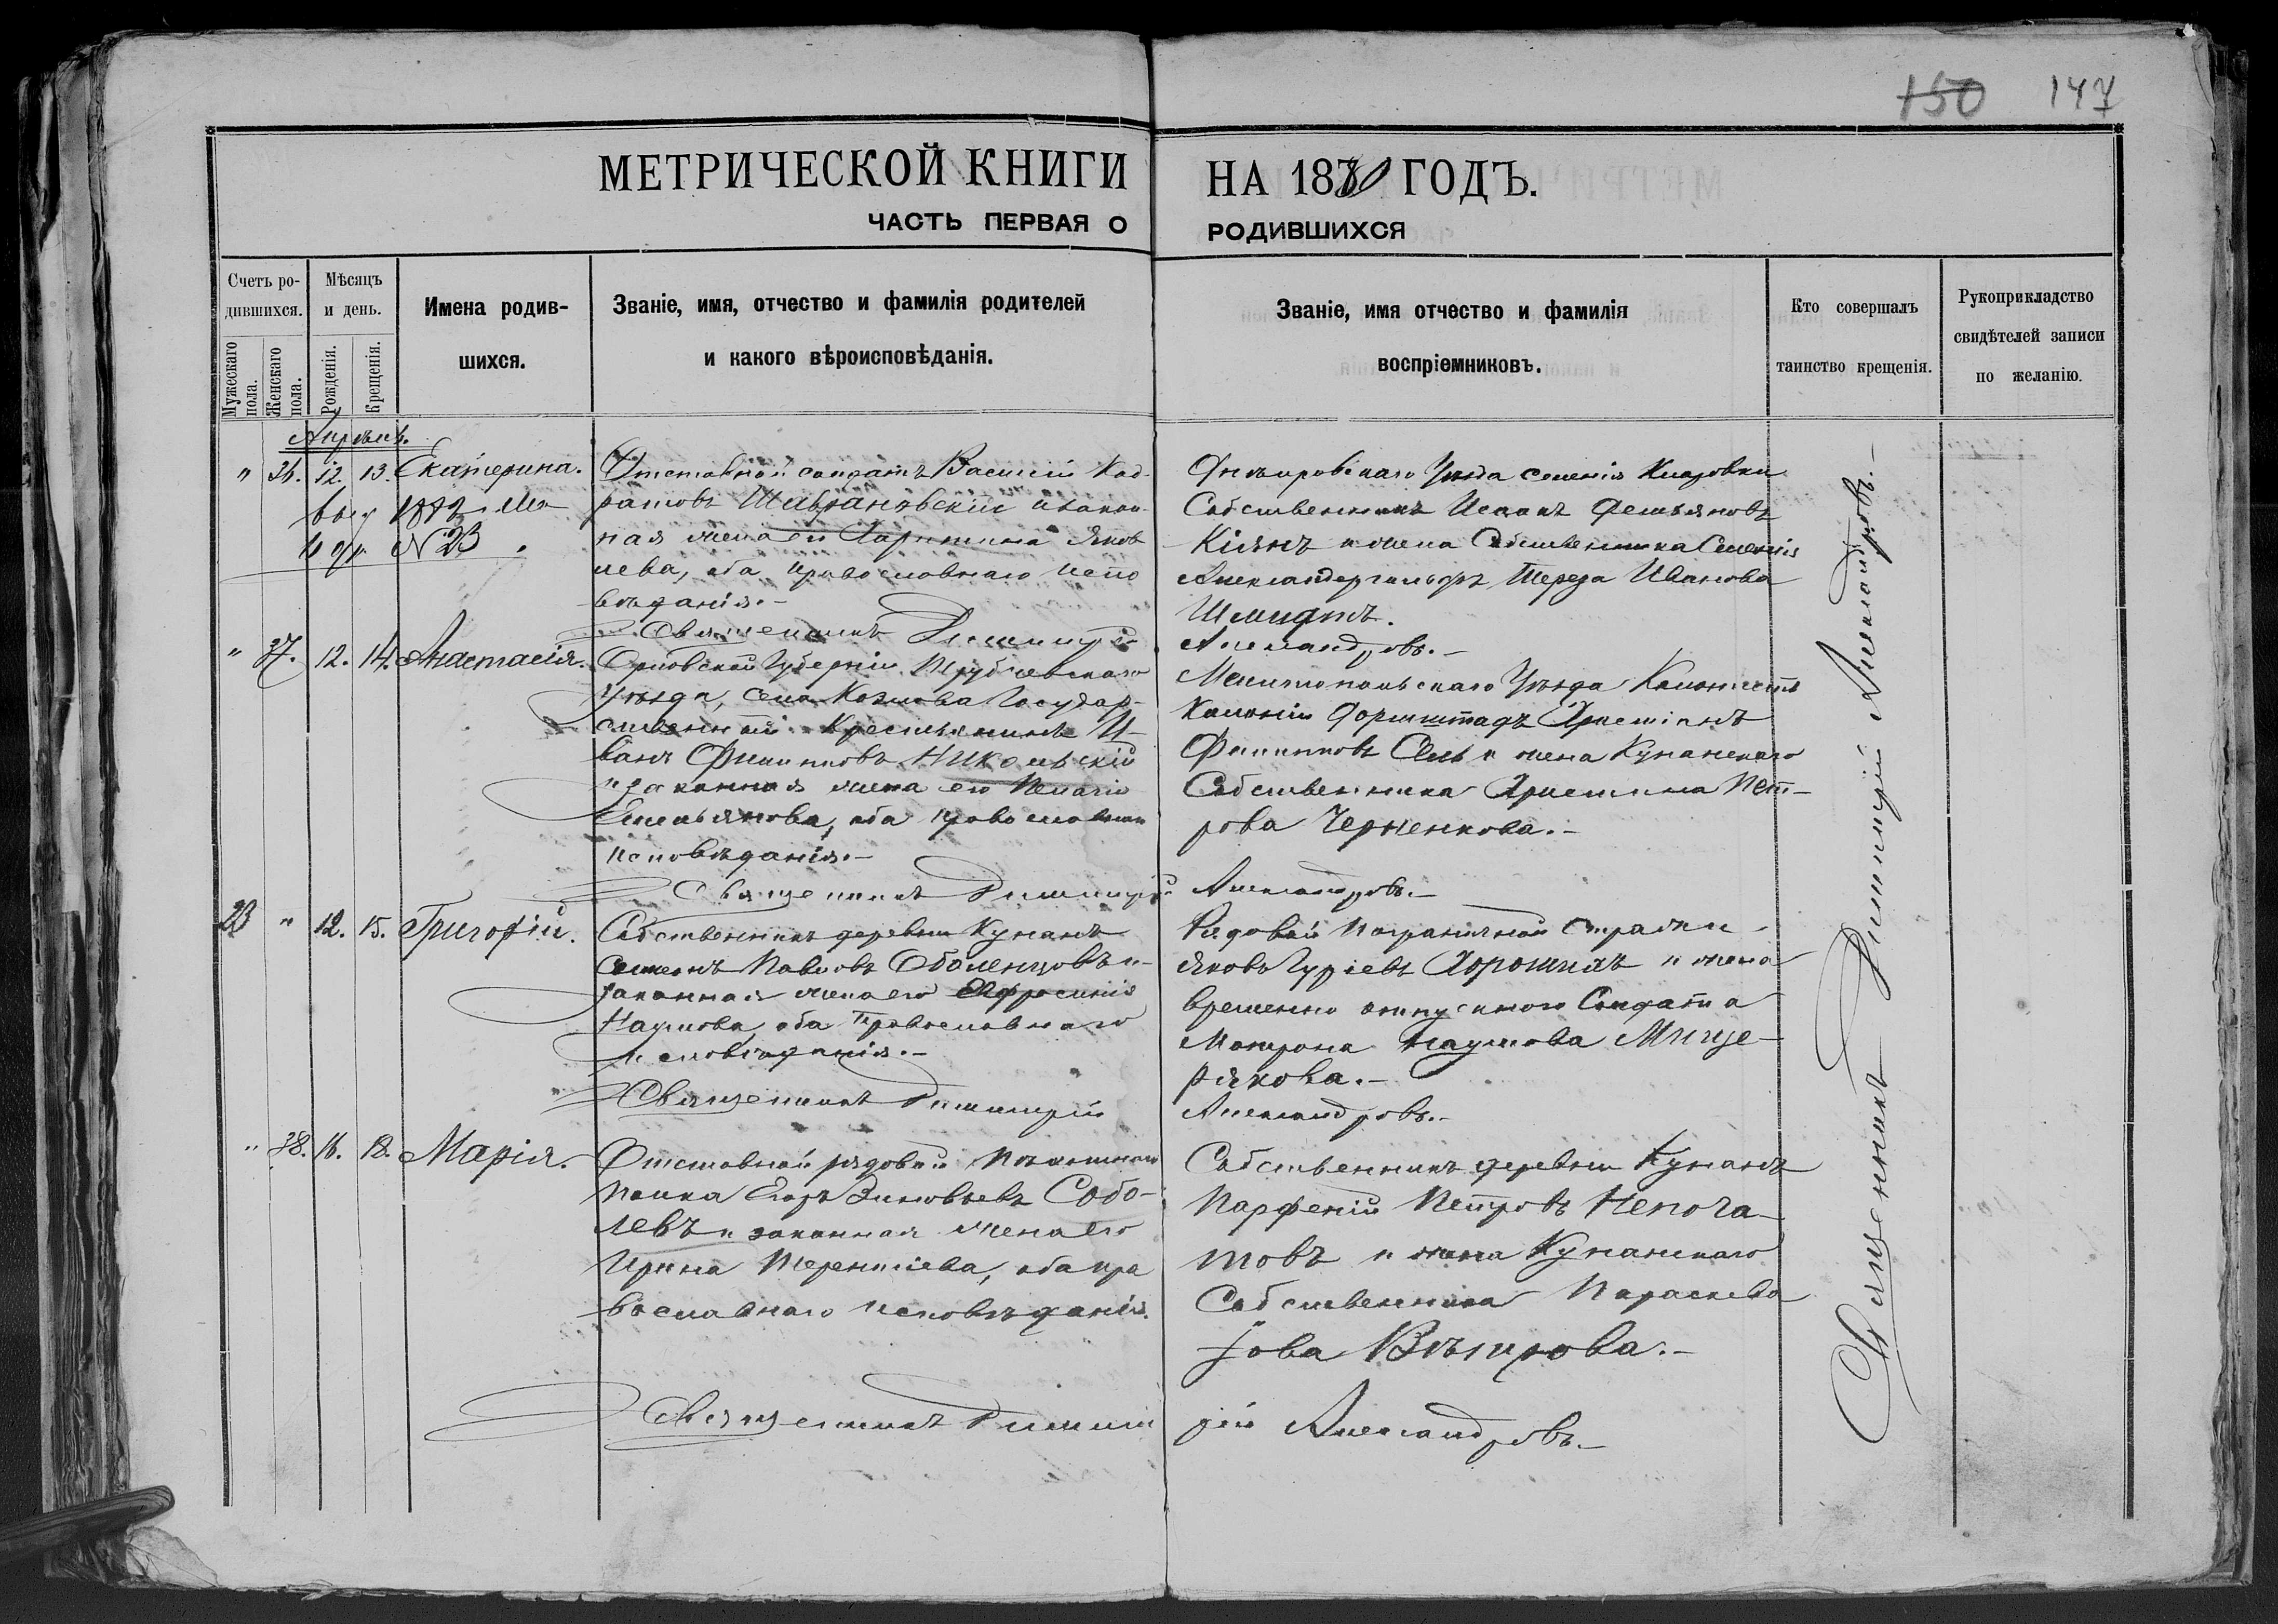 150 147
МЕТРИЧЕСКОЙ КНИГИ НА 1880 ГОДЪ.
ЧАСТЬ ПЕРВАЯ О РОДИВШИХСЯ
Счетъ родившихся.
Мужескаго пола.
Женскаго пола.
Мѣсяцъ и день.
Рожденія.
Крещенія.
Имена родив-
шихся.
Званіе, имя, отчество и фамилія родителей
и какого вѣроисповѣданія.
Званіе, имя отчество и фамилія
воспріемниковъ.
Кто совершалъ
таинство крещенія.
Рукоприкладство
свидѣтелей записи
по желанію.
Апрѣль.
" 12. 13. Екатерина.
№ 23
Отставной солдатъ Василій Код-
ратовъ и закон-
ная жена его Яков
лева, оба православнаго испо
вѣданія.-
Днѣпровскаго Уѣзда селенія
Собственникъ
и жена Собственника Селенія
Тереза Иванова
Шмидтъ.
Священникъ Димитрій Александровъ.-
" 37. 12. 14. Анастасія.
Орловской Губерніи Трубчевскаго
Уѣзда, села Козлова Государ-
ственный Крестьянинъ И-
ванъ Филипповъ Никольскій
и законная жена его Пелагія
Емельянова, оба православнаго
исповѣданія.-
Мелитопольскаго Уѣзда Колонистъ
Колоніи Христіанъ
Филипповъ и жена Куланскаго
Собственника Христина Пет-
рова Черненкова.-
Священникъ Димитрій Александровъ.-
23 " 12. 15. Григорій.
Собственникъ деревни Куланъ
Семенъ Павловъ Оболенцовъ и
законная жена его Ефросинія
Наумова, оба православнаго
исповѣданія.-
Рядовой Пограничной Стражи
Яковъ Гуріевъ Хорошихъ и жена
временно отпускного Солдата
Матрона Наумова Мище-
рякова.-
Священникъ Димитрій Александровъ.-
" 38. 16. 18. Марія.
Отставной рядовой
полка Егоръ Зиновьевъ Собо-
левъ и законная жена его
Ирина Терентіева, оба пра
вославнаго исповѣданія.
Собственникъ деревни Куланъ
Парфеній Петровъ Непоча-
товъ и жена Куланскаго
Собственника Параскева
Іова Вѣтрова.-
Священникъ Димит рій Александровъ.-
Священникъ Димитрій Александровъ.-